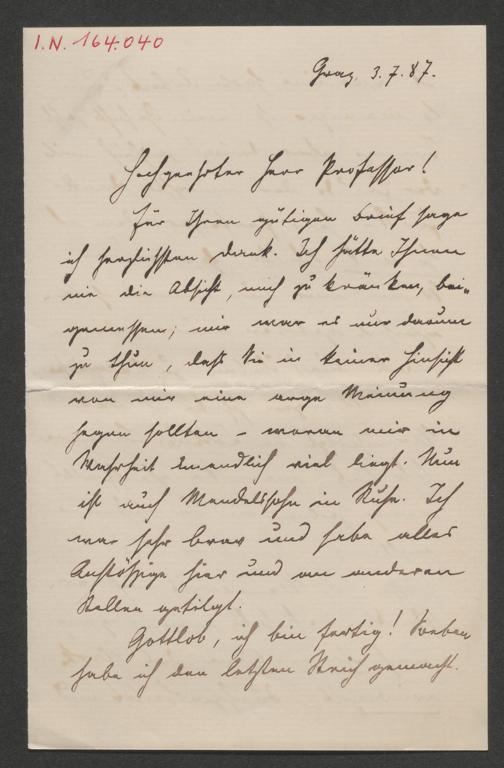 I.N. 164.040
Graz 3.7.87.
Hochgeehrter Herr Professor!
Für Ihren gütigen Brief sage
ich herzlichsten Dank. Ich hätte Ihnen
nie die Absicht, mich zu kränken, bei-
gemessen; mir war es nur darum
zu thun, daß Sie in keiner Hinsicht
von mir eine arge Meinung
hegen sollten – woran mir in
Wahrheit unendlich viel liegt. Nun
ist auch Mendelssohn in Ruhe. Ich
war sehr brav und habe alles
Anstößige hier und an anderen
Stellen getilgt.
Gottlob, ich bin fertig! Soeben
habe ich den letzten Strich gemacht.